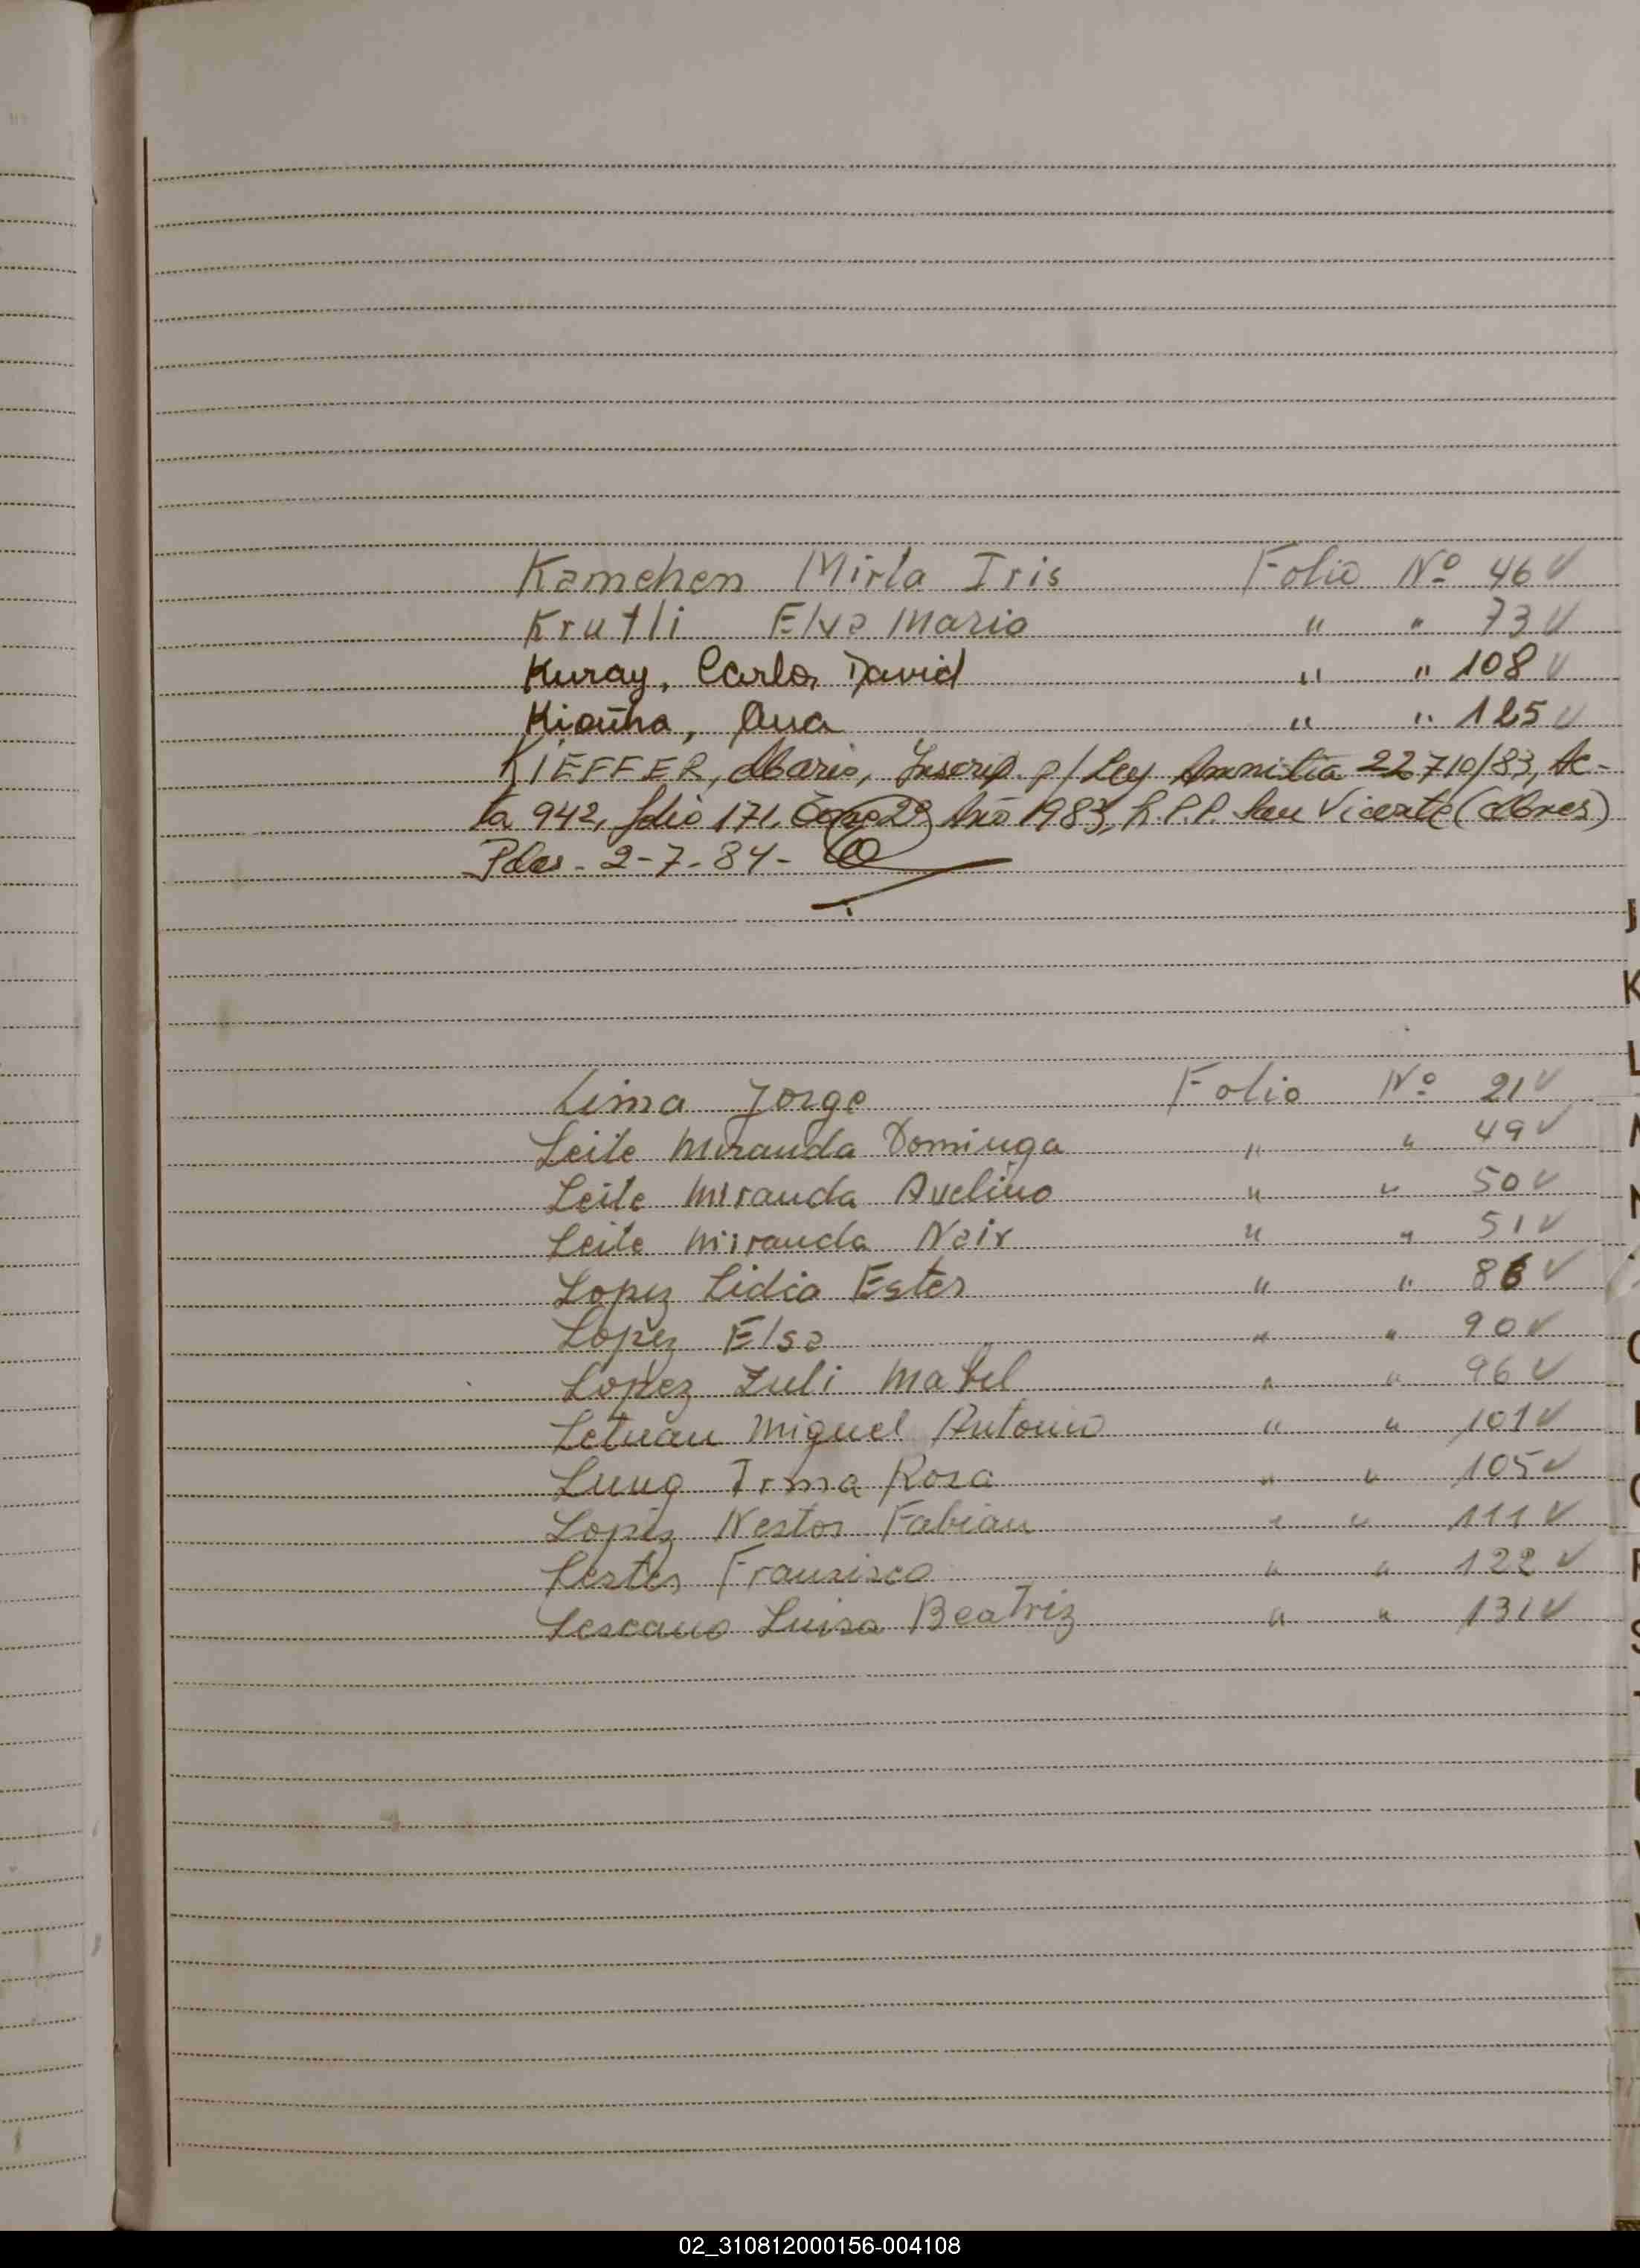 Kamehen Mirta Iris Folio Nº 46
Krutli Elva Maria " " 73
Kuray, Carlos David " " 108
Kiauña, Ana " " 125
KIEFFER, Mario, Inscrip. p/ Ley Amnitia 22710/83, Ac-
ta 942, folio 171, Tomo 2º, Año 1983, R.P.P. San Vicente (Mnes)
Pdas - 2-7-84 -
Lima Jorge Folio Nº 21
Leite Miranda Dominga " " 49
Leite Miranda Avelino " " 50
Leite Miranda Nair " " 51
Lopez Lidia Ester " " 86
Lopez Elsa " " 90
Lopez Zuli Mabel " " 96
Miguel Antonio " " 101
Lung Irma Rosa " " 105
Lopez Nestor Fabian " " 111
Francisco " " 122
Lescano Luisa Beatriz " " 131
J
K
L
M
N
O
P
Q
R
S
T
02_310812000156-004108